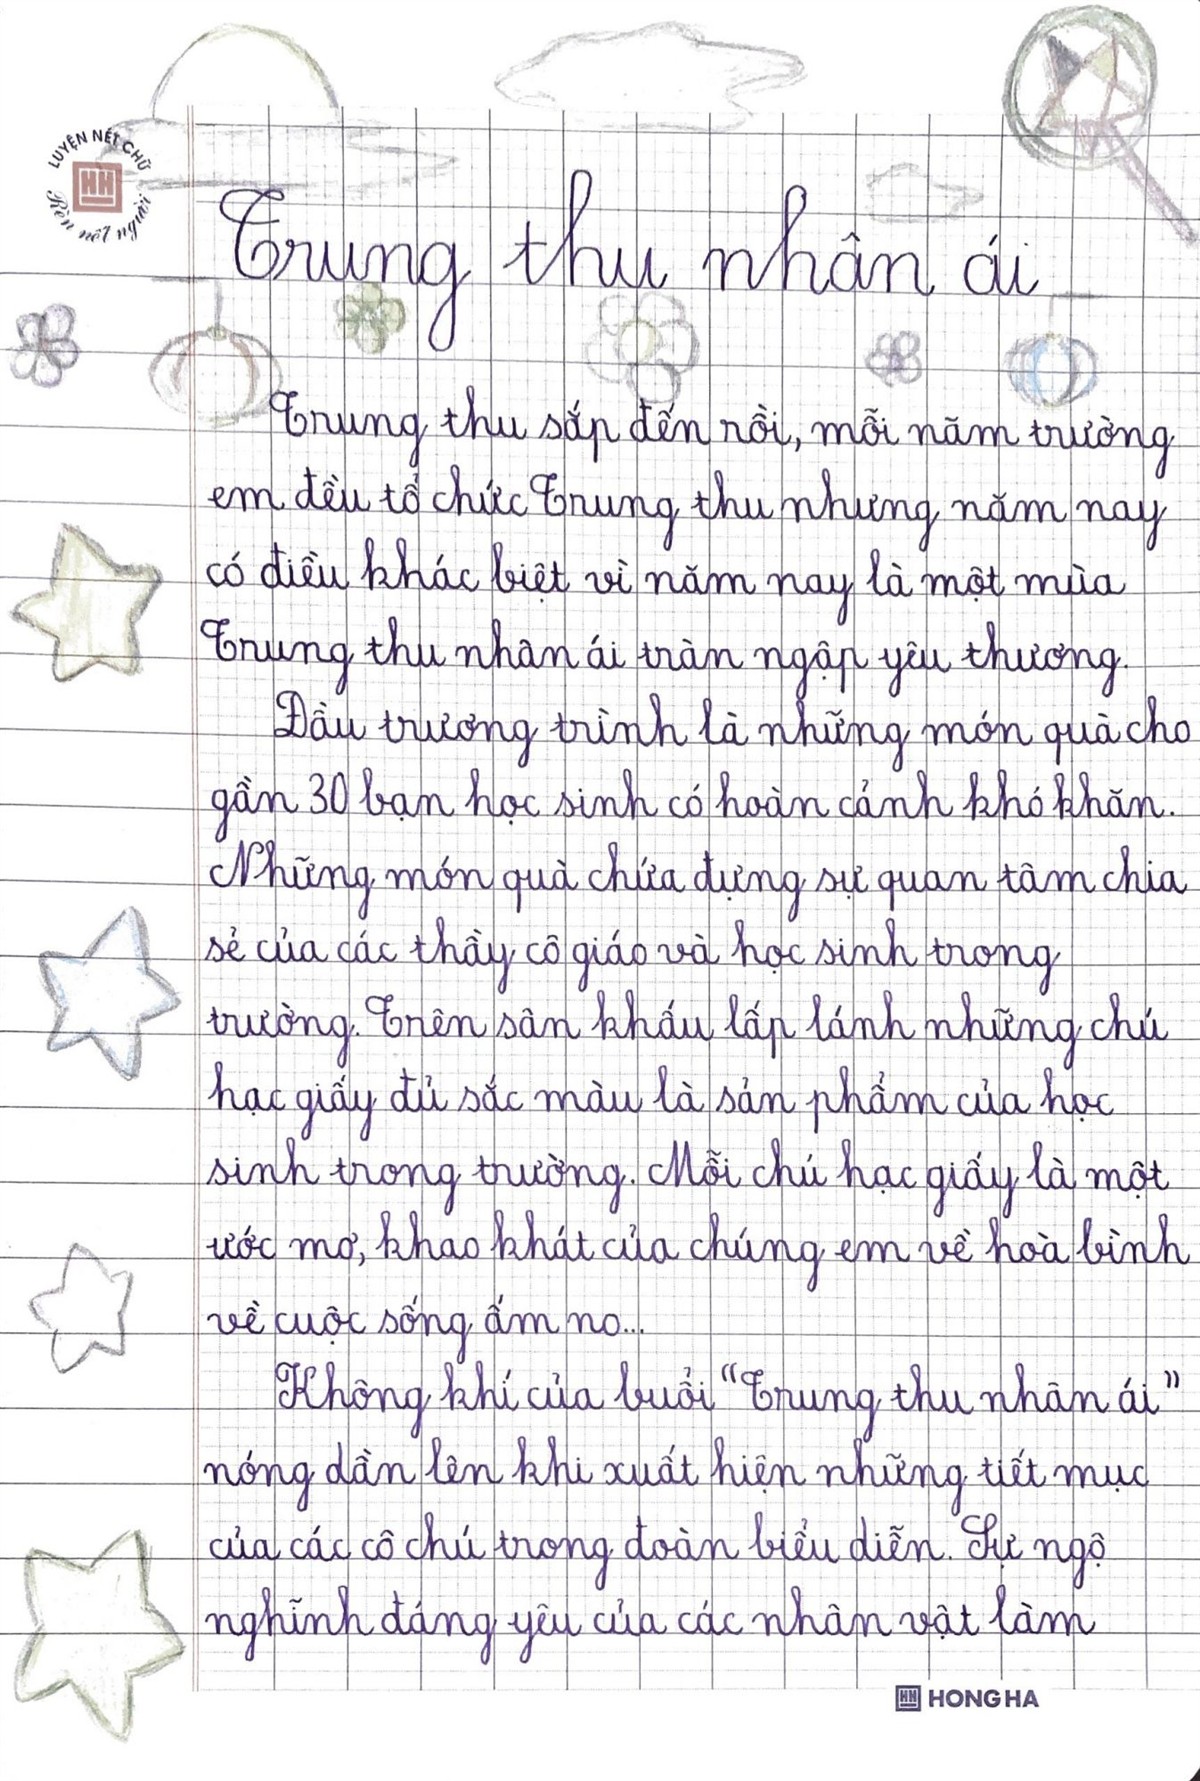 LUYỆN NÉT CHỮ
HH
Rèn nết người
Trung thu nhân ái
Trung thu sắp đến rồi, mỗi năm trường
em đều tổ chức Trung thu nhưng năm nay
có điều khác biệt vì năm nay là một mùa
Trung thu nhân ái tràn ngập yêu thương.
Đầu trương trình là những món quà cho
gần 30 bạn học sinh có hoàn cảnh khó khăn.
Những món quà chứa đựng sự quan tâm chia
sẻ của các thầy cô giáo và học sinh trong
trường. Trên sân khấu lấp lánh những chú
hạc giấy đủ sắc màu là sản phẩm của học
sinh trong trường. Mỗi chú hạc giấy là một
ước mơ, khao khát của chúng em về hoà bình
về cuộc sống ấm no...
Không khí của buổi "Trung thu nhân ái"
nóng dần lên khi xuất hiện những tiết mục
của các cô chú trong đoàn biểu diễn. Sự ngộ
nghĩnh đáng yêu của các nhân vật làm
HH HONG HA